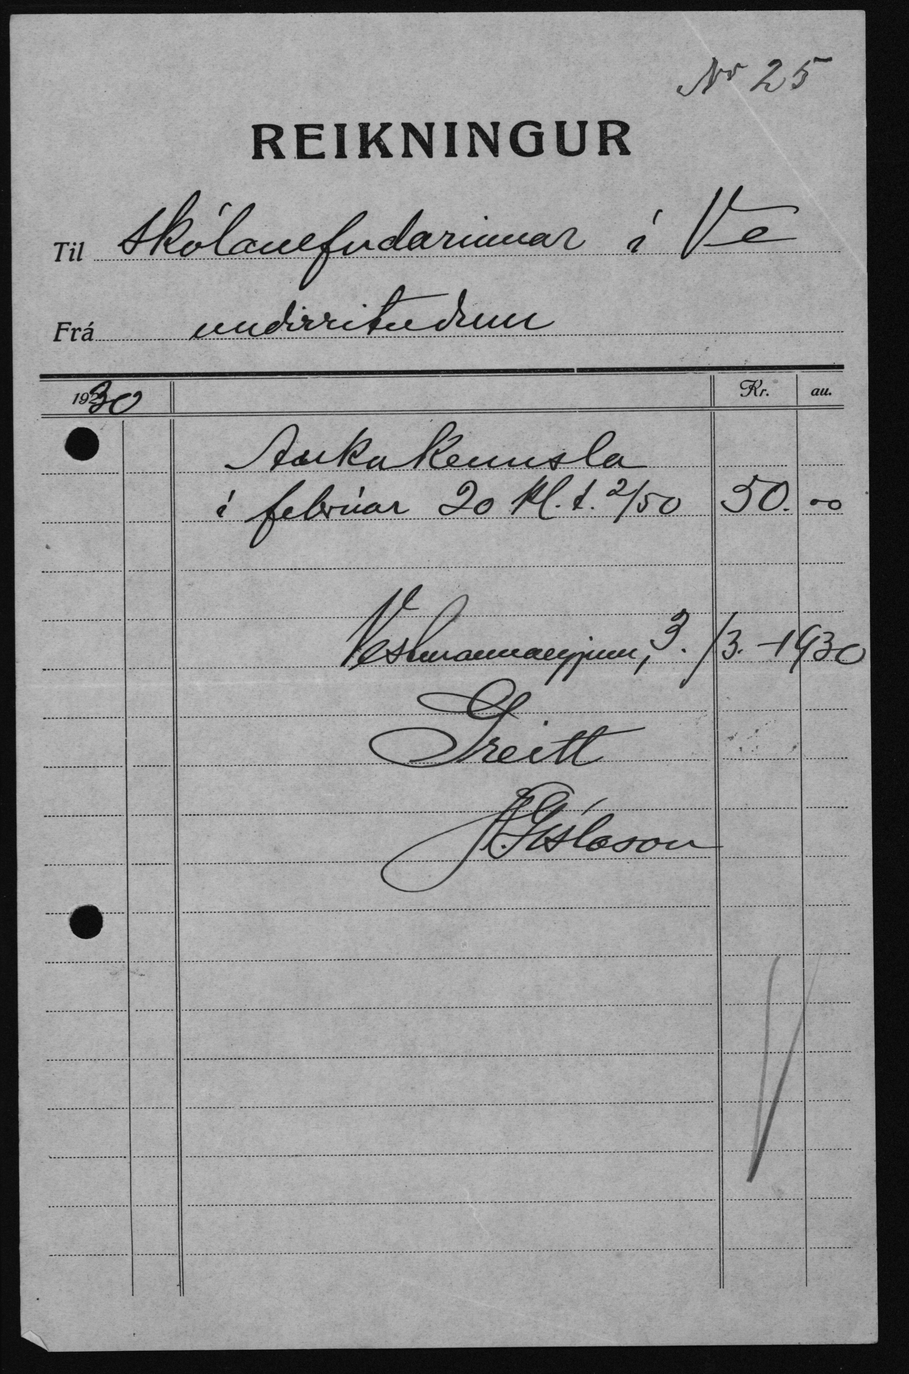 Nr 25
REIKNINGUR
Til skólanefndarinnar í Ve
Frá undirrituðum
1930 Kr. au.
Aukakennsla
í febrúar 20 kl. á 2/50 50. 00
Vestmannaeyjum, 3. /3. - 1930
Greitt
Gíslason